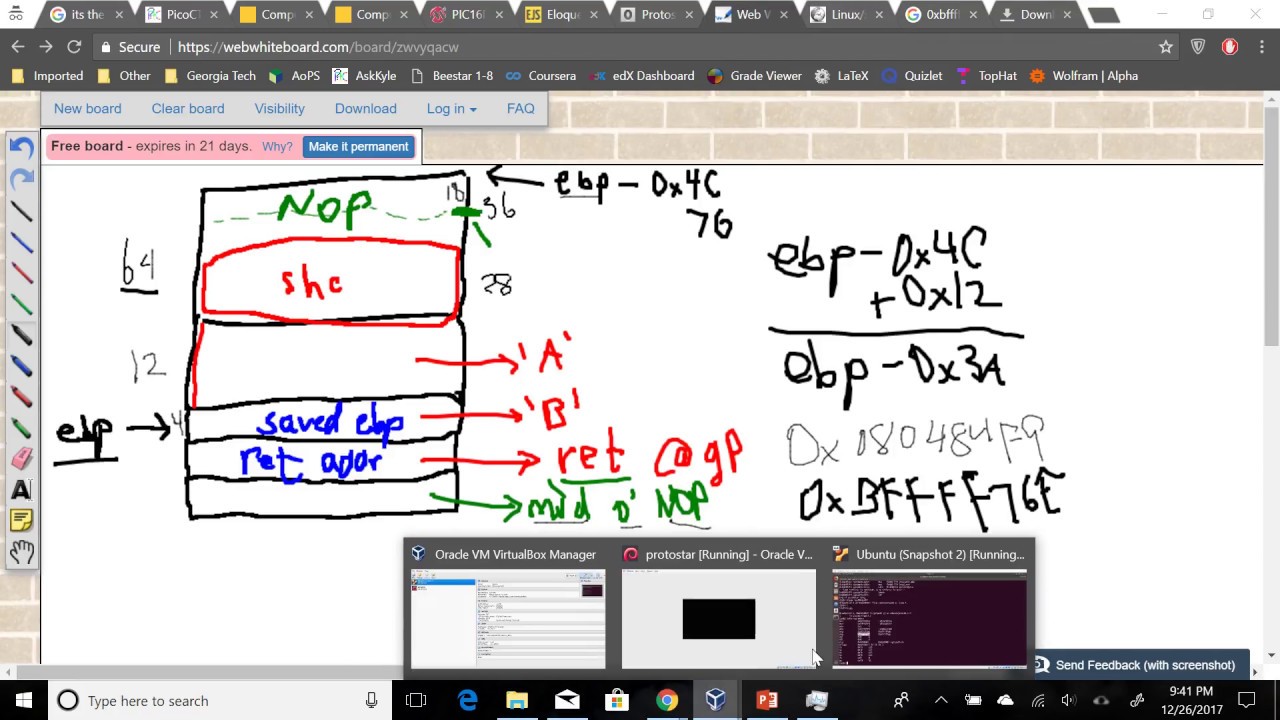 its the
PicoCT
Compu
Compa
PIC16F
Eloque
Protost
Web W
Linux/
0xbfff
Downl
Secure https://webwhiteboard.com/board/zwvyqacw
Imported Other Georgia Tech AoPS AskKyle Beestar 1-8 Coursera edX Dashboard Grade Viewer LaTeX Quizlet TopHat Wolfram | Alpha
New board Clear board Visibility Download Log in FAQ
Free board - expires in 21 days. Why? Make it permanent
ebp - 0x4C
76
NOP
18
36
64
shc
28
ebp - 0x4C
+ 0x12
ebp - 0x3A
12
'A'
ebp
4
saved ebp
'B'
ret addr
ret @gp
mid o' NOP
0x080484F9
0xBFFFF76E
Oracle VM VirtualBox Manager
protostar [Running] - Oracle V...
Ubuntu (Snapshot 2) [Running...
A
Send Feedback (with screenshot)
Type here to search
9:41 PM
12/26/2017